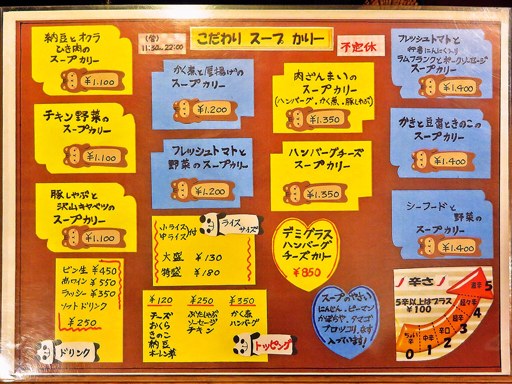 納豆とオクラ
ひき肉の
スープカリー
¥1.100
チキン野菜の
スープカリー
¥1.100
豚しゃぶと
沢山キャベツの
スープカリー
¥1.100
11:30〜22:00
こだわり スープ カリー
不定休
かく煮と厚揚げの
スープカリー
¥1.200
フレッシュトマトと
野菜のスープカリー
¥1.200
肉ざんまいの
スープカリー
(ハンバーグ.かく煮.豚しゃぶ)
¥1.350
ハンバーグチーズ
スープカリー
¥1.350
フレッシュトマトと
ラムフランクと
スープカリー
¥1.400
かきと豆腐ときのこの
スープカリー
¥1.400
シーフードと
野菜の
スープカリー
¥1.400
小ライス
中ライス
付
ライス
サイズ
大盛 ¥130
特盛 ¥180
デミグラス
ハンバーグ
チーズカリー
¥850
ビン生 ¥450
赤ワイン ¥550
ラッシー ¥350
ソフトドリンク
¥250
ドリンク
¥120
チーズ
おくら
きのこ
納豆
ホーレン草
¥250
ぶたしゃぶ
ソーセージ
チキン
¥350
かく煮
ハンバーグ
トッピング
スープのやさい
にんじん.ピーマン
かぼちゃ.タマゴ
ブロッコリ.なす
入っています!
辛さ
5辛以上はプラス
¥100
0 1 2 3 4 5
中辛
辛口
超辛